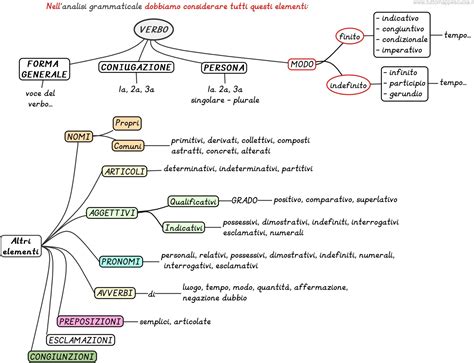 Nell'analisi grammaticale dobbiamo considerare tutti questi elementi
VERBO
FORMA
GENERALE
voce del
verbo...
CONIUGAZIONE
1a, 2a, 3a
PERSONA
1a. 2a, 3a
singolare - plurale
MODO
finito
- indicativo
- congiuntivo
- condizionale
- imperativo
tempo...
indefinito
- infinito
- participio
- gerundio
tempo...
Altri
elementi
NOMI
Propri
Comuni
primitivi, derivati, collettivi, composti
astratti, concreti, alterati
ARTICOLI
determinativi, indeterminativi, partitivi
AGGETTIVI
Qualificativi
GRADO
positivo, comparativo, superlativo
Indicativi
possessivi, dimostrativi, indefiniti, interrogativi
esclamativi, numerali
PRONOMI
personali, relativi, possessivi, dimostrativi, indefiniti, numerali,
interrogativi, esclamativi
AVVERBI
di
luogo, tempo, modo, quantità, affermazione,
negazione dubbio
PREPOSIZIONI
semplici, articolate
ESCLAMAZIONI
CONGIUNZIONI